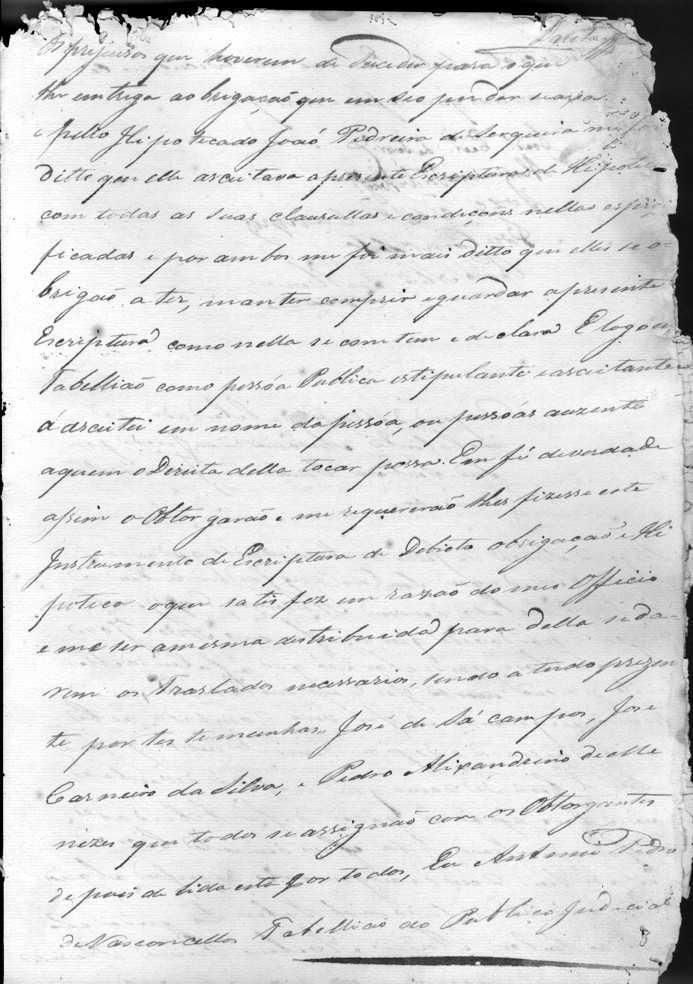 Os prejuisos que houverem de suceder para o que
lhe entrega ao brigação que em seo poder
e pello Hipotecado João Pedreira de Serqueira me foi
ditto que elle asceitava apresente Escriptura de Hipoteca
com todas as suas clausullas e condiçons nellas especi
ficadas e por ambos me foi mais ditto que elles se o-
brigão a ter, manter comprir eguardar apresente
Escriptura como nella se contem e declara E logo eu
Tabellião como pessôa Publica estipulante e asceitante
á asceitei em nome da pessôa, ou pessôas auzente
aquem o Dereito della tocar possa. Em fé de verdade
asim o Obtorgarão e me requererão lhes fizesse este
Instrumento de Escriptura de Debito obrigação e Hi
poteca o que satisfez em razão do meu Officio
e me ser amesma destribuida para della se da-
rem os Traslados necessarios, sendo a tudo prezen
te por testemunhas José de Sá Campos, José
Carneiro da Silva, e Pedro Alixandrino de Me
nezes que todos se assignão com os Obtorgantes
depois de lida esta por todos, Eu Antonio Pedro
de Vasconcellos Tabellião do Publico Judicial